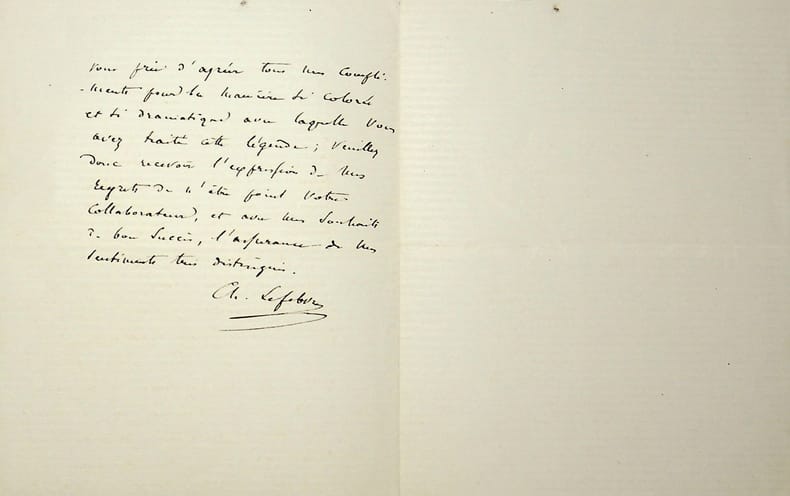 vous prie d'agréer tous mes compli-
-ments pour la manière si colorée
et si dramatique avec laquelle vous
avez traité cette légende; veuillez
donc recevoir l'expression de mes
regrets de n'être point votre
collaborateur, et avec mes souhaits
de bon succès, l'assurance de mes
sentiments très distingués.
Ch. Lefebvre